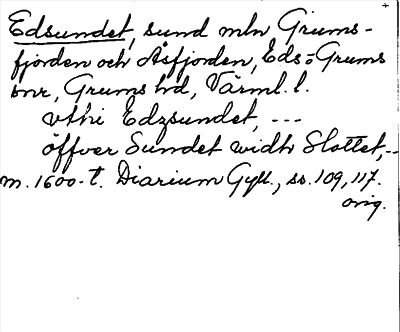 Edsundet, sund mln Grums-
fjorden och Åsfjorden, Eds o Grums
snr, Grums hd, Värml. l.
vthi Edzsundet, ---
öffver Sundet widh Slottet, --
m. 1600-t. Diarium Gyll., ss. 109, 117.
orig.